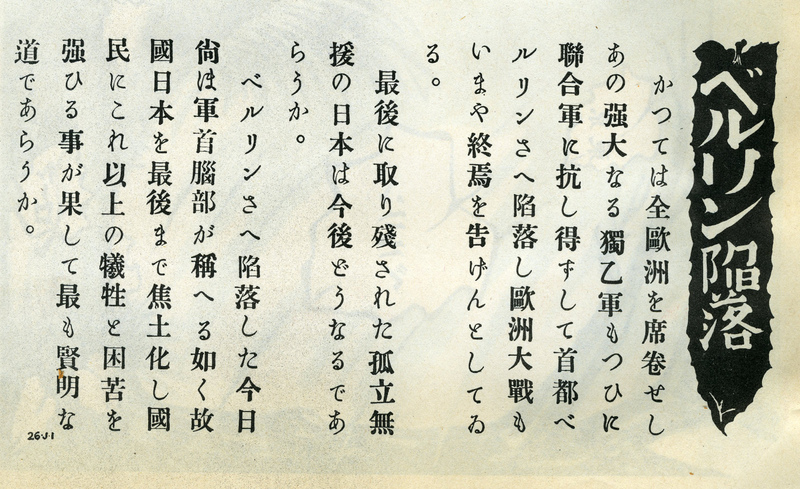 ベルリン陥落
かつては全歐洲を席卷せし
あの强大なる獨乙軍もつひに
聯合軍に抗し得すして首都ベ
ルリンさへ陥落し歐洲大戰も
いまや終焉を告げんとしてゐ
る。
最後に取り殘された孤立無
援の日本は今後どうなるであ
らうか。
ベルリンさへ陥落した今日
尙ほ軍首腦部が稱へる如く故
國日本を最後まで焦土化し國
民にこれ以上の犠牲と困苦を
强ひる事が果して最も賢明な
道であらうか。
26-J-1